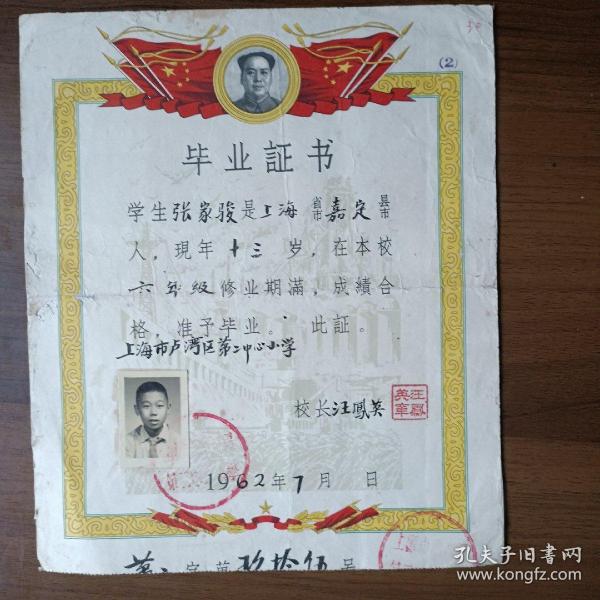 50
(2)
毕业証书
学生张家骏是上海省市嘉定县市
人，現年十三岁，在本校
六年级修业期滿，成績合
格，准予毕业。此証。
上海市卢湾区第二中心小学
校长汪鳳英
汪鳳英章
1962年7月 日
字第玖拾伍号
孔夫子旧書网
www.kongfz.com